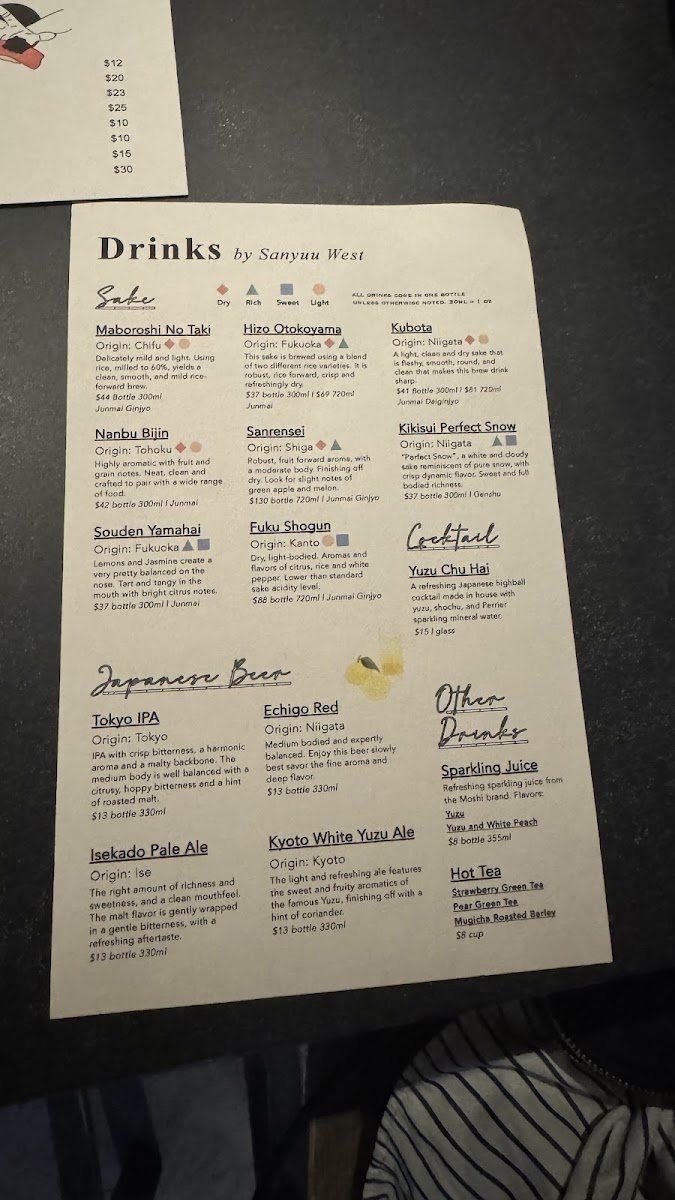 $12
$20
$23
$25
$10
$10
$15
$30
Drinks by Sanyuu West
Sake
Dry Rich Sweet Light
ALL DRINKS COME IN ONE BOTTLE
UNLESS OTHERWISE NOTED. 30ML = 1 OZ
Maboroshi No Taki
Origin: Chifu
Delicately mild and light. Using
rice, milled to 60%, yields a
clean, smooth, and mild rice-
forward brew.
$44 Bottle 300ml
Junmai Ginjyo
Hizo Otokoyama
Origin: Fukuoka
This sake is brewed using a blend
of two different rice varieties. It is
robust, rice forward, crisp and
refreshingly dry.
$37 bottle 300ml | $69 720ml
Junmai
Kubota
Origin: Niigata
A light, clean and dry sake that
is fleshy, smooth, round, and
clean that makes this brew drink
sharp.
$41 Bottle 300ml | $81 720ml
Junmai Daiginjyo
Nanbu Bijin
Origin: Tohoku
Highly aromatic with fruit and
grain notes. Neat, clean and
crafted to pair with a wide range
of food.
$42 bottle 300ml | Junmai
Sanrensei
Origin: Shiga
Robust, fruit forward aroma, with
a moderate body. Finishing off
dry. Look for slight notes of
green apple and melon.
$130 bottle 720ml | Junmai Ginjyo
Kikisui Perfect Snow
Origin: Niigata
"Perfect Snow", a white and cloudy
sake reminiscent of pure snow, with
crisp dynamic flavor. Sweet and full
bodied richness.
$37 bottle 300ml | Genshu
Souden Yamahai
Origin: Fukuoka
Lemons and Jasmine create a
very pretty balanced on the
nose. Tart and tangy in the
mouth with bright citrus notes.
$37 bottle 300ml | Junmai
Fuku Shogun
Origin: Kanto
Dry, light-bodied. Aromas and
flavors of citrus, rice and white
pepper. Lower than standard
sake acidity level.
$88 bottle 720ml | Junmai Ginjyo
Cocktail
Yuzu Chu Hai
A refreshing Japanese highball
cocktail made in house with
yuzu, shochu, and Perrier
sparkling mineral water.
$15 | glass
Japanese Beer
Tokyo IPA
Origin: Tokyo
IPA with crisp bitterness, a harmonic
aroma and a malty backbone. The
medium body is well balanced with a
citrusy, hoppy bitterness and a hint
of roasted malt.
$13 bottle 330ml
Echigo Red
Origin: Niigata
Medium bodied and expertly
balanced. Enjoy this beer slowly
best savor the fine aroma and
deep flavor.
$13 bottle 330ml
Isekado Pale Ale
Origin: Ise
The right amount of richness and
sweetness, and a clean mouthfeel.
The malt flavor is gently wrapped
in a gentle bitterness, with a
refreshing aftertaste.
$13 bottle 330ml
Kyoto White Yuzu Ale
Origin: Kyoto
The light and refreshing ale features
the sweet and fruity aromatics of
the famous Yuzu, finishing off with a
hint of coriander.
$13 bottle 330ml
Other
Drinks
Sparkling Juice
Refreshing sparkling juice from
the Moshi brand. Flavors:
Yuzu
Yuzu and White Peach
$8 bottle 355ml
Hot Tea
Strawberry Green Tea
Pear Green Tea
Mugicha Roasted Barley
$8 cup